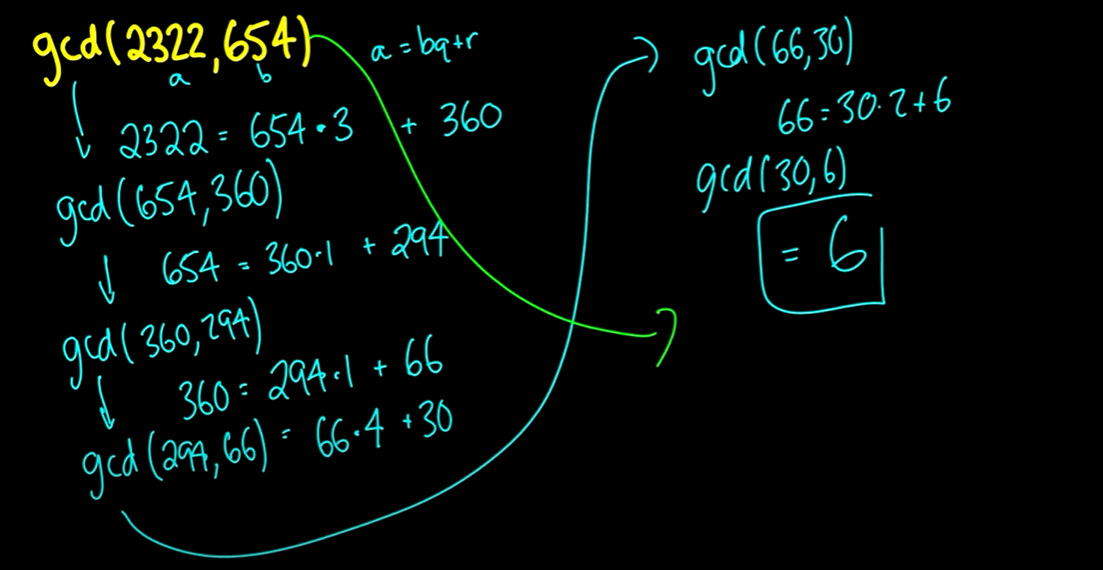 gcd(2322,654)
a b
a = bq+r
2322 = 654·3 + 360
gcd(654,360)
654 = 360·1 + 294
gcd(360,294)
360 = 294·1 + 66
gcd(294,66) = 66·4 + 30
gcd(66,30)
66=30·2+6
gcd(30,6)
= 6